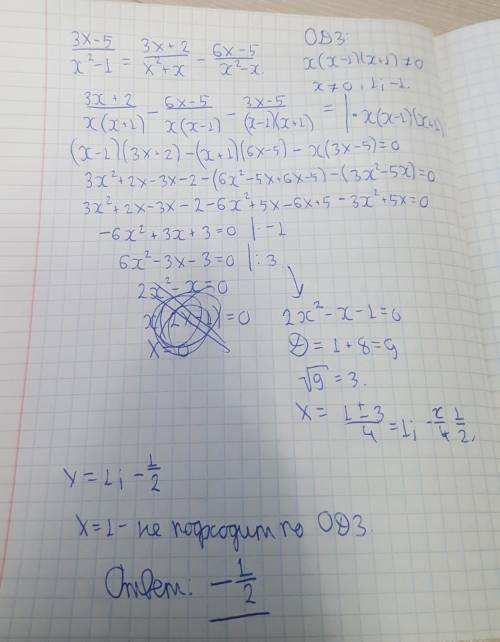 (3x-5)/(x²-1) = (3x+2)/(x²+x) - (6x-5)/(x²-x)
ОДЗ:
x(x-1)(x+1)≠0
x≠0, 1, -1.
(3x+2)/(x(x+1)) - (6x-5)/(x(x-1)) - (3x-5)/((x-1)(x+1)) = |·x(x-1)(x+1)
(x-1)(3x+2)-(x+1)(6x-5)-x(3x-5)=0
3x²+2x-3x-2-(6x²-5x+6x-5)-(3x²-5x)=0
3x²+2x-3x-2-6x²+5x-6x+5-3x²+5x=0
-6x²+3x+3=0 |:-1
6x²-3x-3=0 |:3
2x²-x=0
x(2x-1)=0
x=0
2x²-x-1=0
D=1+8=9
√9=3.
x= (1±3)/4 =1; - 1/2.
x=1; -1/2
x=1- не подходит по ОДЗ.
Ответ: -1/2